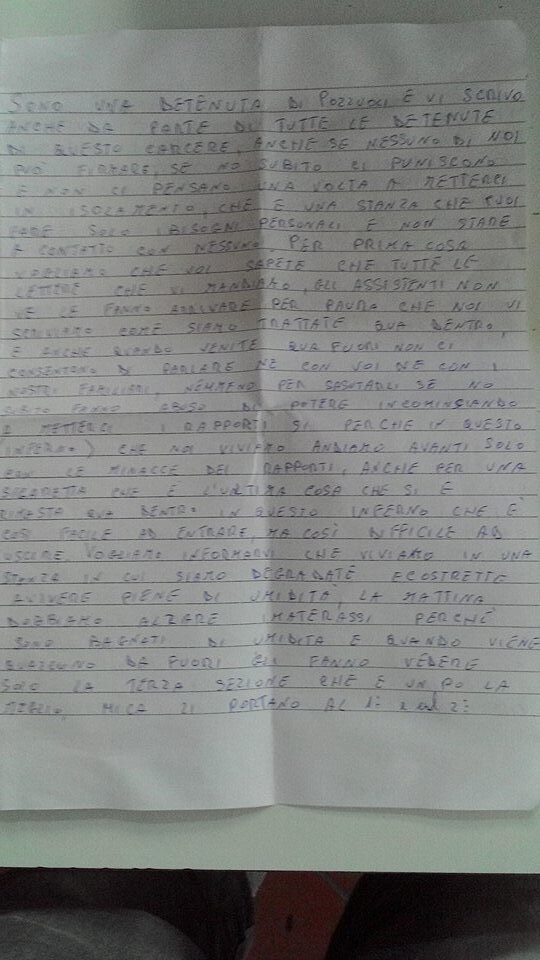 SONO UNA DETENUTA DI POZZUOLI E VI SCRIVO
ANCHE DA PARTE DI TUTTE LE DETENUTE
DI QUESTO CARCERE, ANCHE SE NESSUNO DI NOI
PUÒ FIRMARE, SE NO SUBITO CI PUNISCONO
E NON CI PENSANO UNA VOLTA A METTERCI
IN ISOLAMENTO, CHE E UNA STANZA CHE PUOI
FARE SOLO I BISOGNI PERSONALI E NON STARE
A CONTATTO CON NESSUNO. PER PRIMA COSA
VOGLIAMO CHE VOI SAPETE CHE TUTTE LE
LETTERE CHE VI MANDIAMO, GLI ASSISTENTI NON
VE LE FANNO ARRIVARE PER PAURA CHE NOI VI
SCRIVIAMO COME SIAMO TRATTATE QUA DENTRO,
E ANCHE QUANDO VENITE QUA FUORI NON CI
CONSENTONO DI PARLARE NE CON VOI NE CON I
NOSTRI FAMILIARI, NEMMENO PER SALUTARLI SE NO
SUBITO FANNO ABUSO DI POTERE INCOMINCIANDO
A METTERCI I RAPPORTI SI PERCHE IN QUESTO
(INFERNO) CHE NOI VIVIAMO ANDIAMO AVANTI SOLO
CON LE MINACCE DEI RAPPORTI, ANCHE PER UNA
SIGARETTA CHE E L'ULTIMA COSA CHE SI E
RIMASTA QUA DENTRO IN QUESTO INFERNO CHE È
COSI FACILE AD ENTRARE, MA COSÌ DIFFICILE AD
USCIRE. VOGLIAMO INFORMARVI CHE VIVIAMO IN UNA
STANZA IN CUI SIAMO DEGRADATE E COSTRETTE
A VIVERE PIENE DI UMIDITA, LA MATTINA
DOBBIAMO ALZARE I MATERASSI PERCHE
SONO BAGNATI DI UMIDITA E QUANDO VIENE
QUALCUNO DA FUORI GLI FANNO VEDERE
SOLO LA TERZA SEZIONE CHE E UN PO LA
MEGLIO, MICA LI PORTANO AL 1°